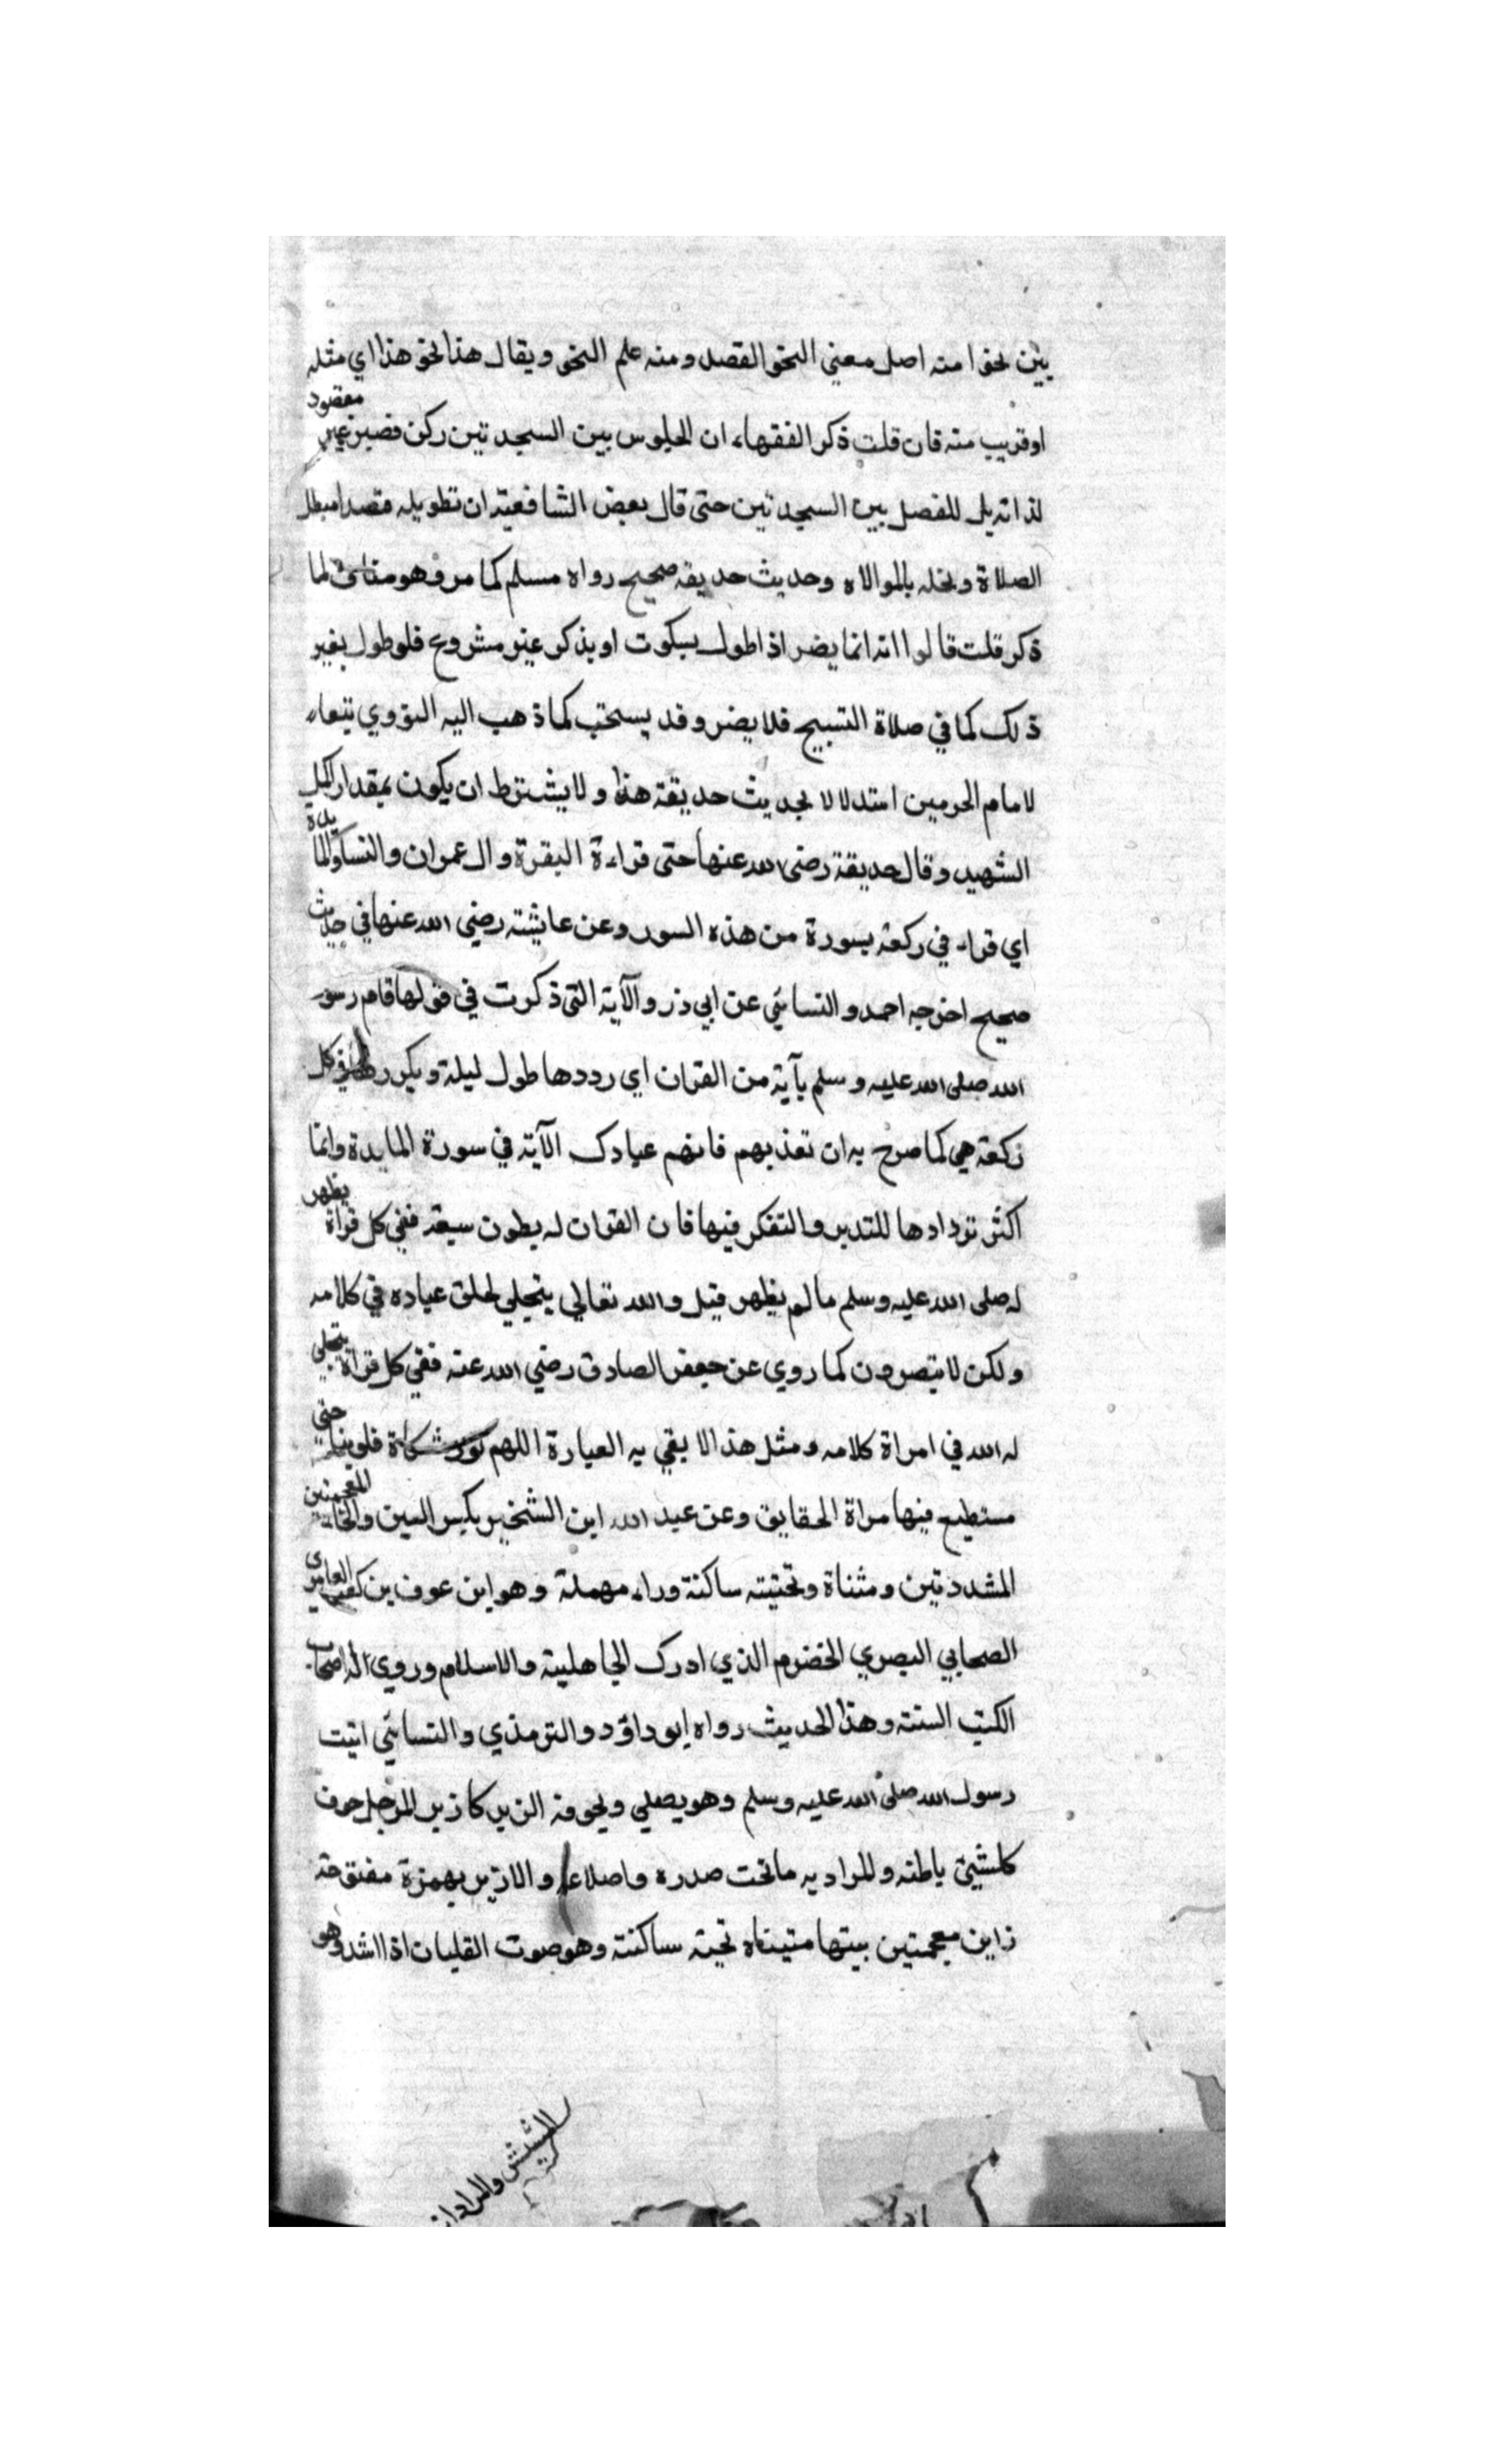 بين نحوا منه اصل معني النحو القصد ومنه علم النحو ويقال هذا نحو هذا اي مثله
او قريب منه فان قلت ذكر الفقهاء ان الجلوس بين السجدتين ركن قصير غير مقصود
لذاته بل للفصل بين السجدتين حتى قال بعض الشافعية ان تطويله قصدا مبطل
الصلاة ونحله بالموالاه وحديث حديقه صحيح رواه مسلم كما مر وهو مناف لما
ذكر قلت قالوا انه انما يضر اذا طول بسكوت او بذكر غير مشروع فلو طول بغير
ذلك كما في صلاة التسبيح فلا يضر وقد يستحب كما ذهب اليه النووي تبعا
لامام الحرمين استدلالا بحديث حديقة هذا ولا يشترط ان يكون بمقدار اكمل
الشهيد وقال حديقة رضى الله عنها حتى قراءة البقرة وال عمران والنسا والمايدة
اي قراء في ركعة بسورة من هذه السور وعن عايشة رضي الله عنها في حديث
صحيح اخرجه احمد والنسائي عن ابي ذر والآية التى ذكرت في قولها قام رسول
الله صلى الله عليه وسلم بآية من القران اي رددها طول ليلة ويكررها في كل
ركعة هي كما صرح به ان تعذبهم فانهم عبادك الآية في سورة المايدة وانما
اكثر تردادها للتدبر والتفكر فيها فان القران له بطون سبعة ففي كل قراة يظهر
له صلى الله عليه وسلم ما لم يظهر قبل والله تعالي يتجلي لخلق عباده في كلامه
ولكن لا يبصرون كما روي عن جعفر الصادق رضي الله عنه ففي كل قراة يتجلى
له الله في امراة كلامه ومثل هذا لا يفي به العبارة اللهم نور مشكاة قلوبنا حتى
مستطيع فيها مراة الحقايق وعن عبد الله ابن الشخير بكسر السين والخاء المعجمتين
المشددتين ومثناة وتحتيته ساكنة وراء مهملة وهو ابن عوف بن كعب العامرى
الصحابي البصري الخضرم الذي ادرك الجاهلية والاسلام وروي له اصحاب
الكتب الستة وهذا الحديث رواه ابو داؤد والترمذي والنسائي اتيت
رسول الله صلى الله عليه وسلم وهو يصلي ولجوفه ازيز كازيز المرجل جوف
كلشيئ باطنه والمراد به ما تحت صدره واضلاعه والازيز بهمزة مفتوحة
زاين معجمتين بينها متيناه تحية ساكنة وهو صوت الغليان اذا اشد وهو
النشيش والمراد